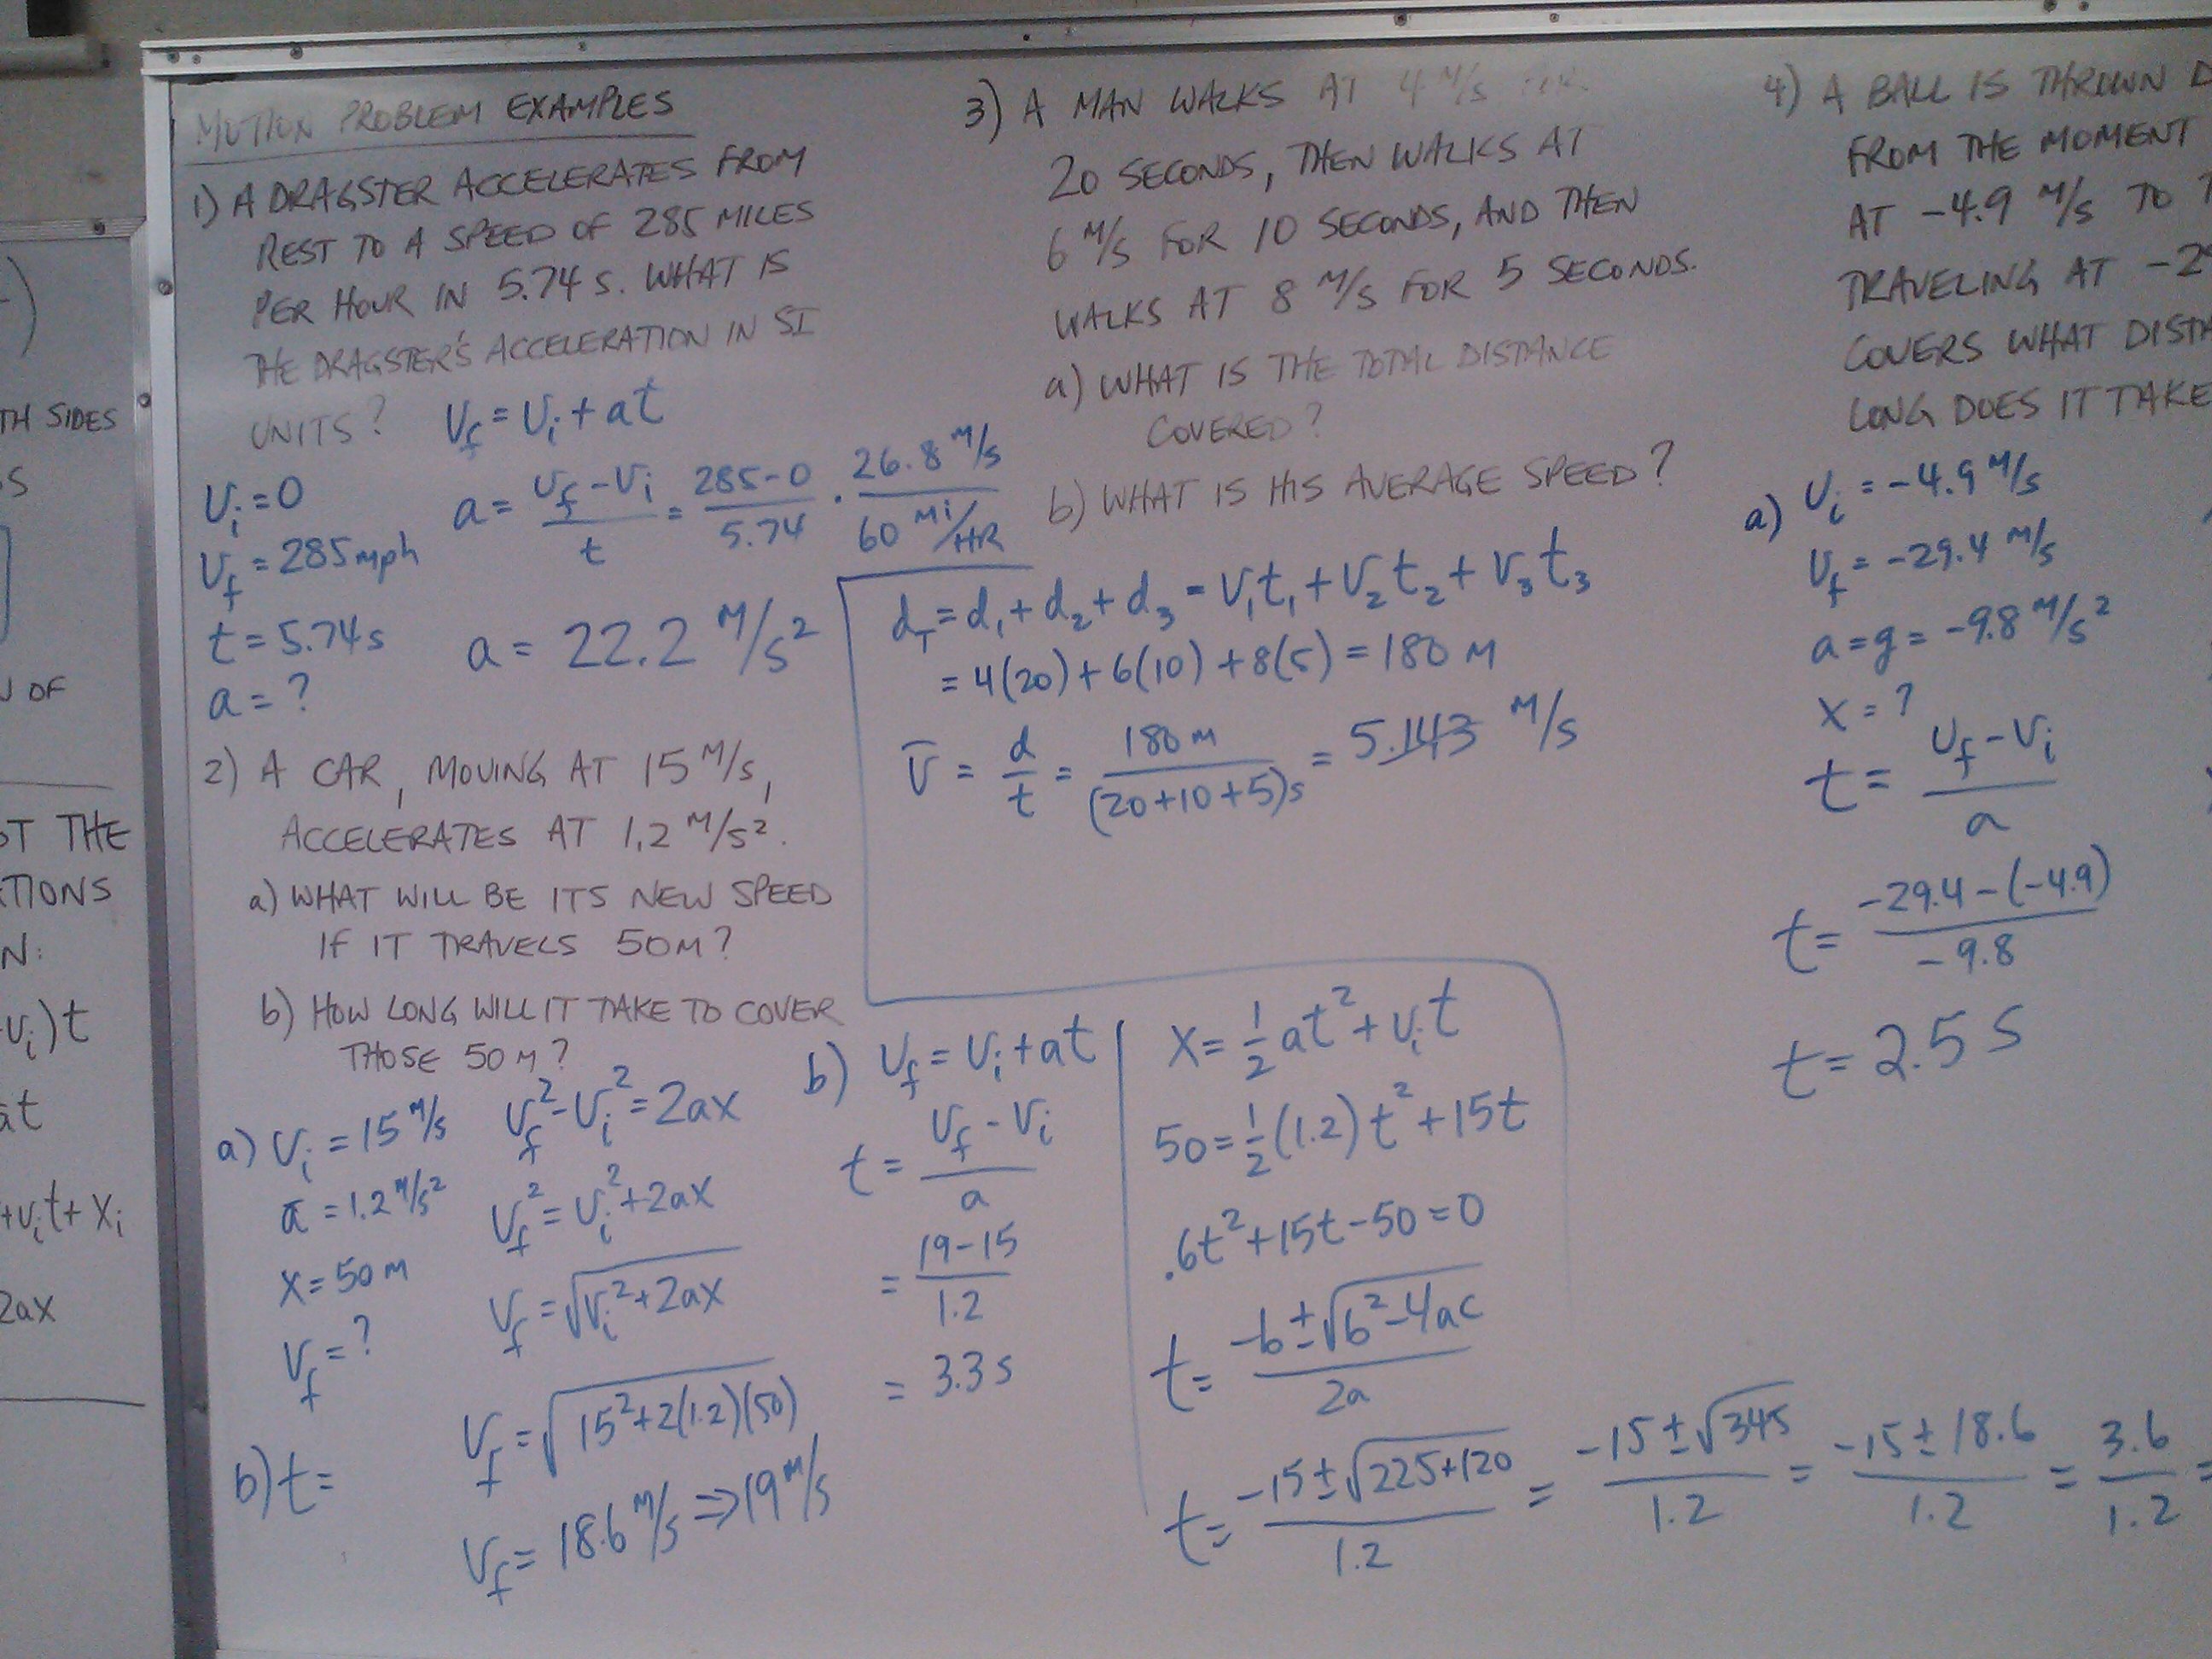 MOTION PROBLEM EXAMPLES
1) A DRAGSTER ACCELERATES FROM
REST TO A SPEED OF 285 MILES
PER HOUR IN 5.74 S. WHAT IS
THE DRAGSTER'S ACCELERATION IN SI
UNITS?
V_f = V_i + at
V_i = 0
V_f = 285mph
t = 5.74 s
a = ?
a = (V_f - V_i)/t = (285-0)/5.74 · (26.8 M/S)/(60 Mi/HR)
a = 22.2 M/S²
2) A CAR, MOVING AT 15 M/S,
ACCELERATES AT 1.2 M/S².
a) WHAT WILL BE ITS NEW SPEED
IF IT TRAVELS 50M?
b) HOW LONG WILL IT TAKE TO COVER
THOSE 50 M?
a) V_i = 15 M/S
a = 1.2 M/S²
X = 50 M
V_f = ?
b) t =
V_f² - V_i² = 2ax
V_f² = V_i² + 2ax
V_f = √(V_i² + 2ax)
V_f = √(15² + 2(1.2)(50))
V_f = 18.6 M/S ⇒ 19 M/S
b) V_f = V_i + at
t = (V_f - V_i)/a
= (19-15)/1.2
= 3.3 s
X = ½ at² + V_i t
50 = ½ (1.2) t² + 15t
.6t² + 15t - 50 = 0
t = (-b ± √(b² - 4ac))/2a
t = (-15 ± √(225+120))/1.2 = (-15 ± √345)/1.2 = (-15 ± 18.6)/1.2 = 3.6/1.2 =
3) A MAN WALKS AT 4 M/S FOR
20 SECONDS, THEN WALKS AT
6 M/S FOR 10 SECONDS, AND THEN
WALKS AT 8 M/S FOR 5 SECONDS.
a) WHAT IS THE TOTAL DISTANCE
COVERED?
b) WHAT IS HIS AVERAGE SPEED?
d_T = d₁ + d₂ + d₃ = V₁t₁ + V₂t₂ + V₃t₃
= 4(20) + 6(10) + 8(5) = 180 M
V̄ = d/t = 180 M/(20+10+5)s = 5.143 M/S
4) A BALL IS THROWN D
FROM THE MOMENT
AT -4.9 M/S TO
TRAVELING AT -2
COVERS WHAT DISTA
LONG DOES IT TAKE
a) V_i = -4.9 M/S
V_f = -29.4 M/S
a = g = -9.8 M/S²
X = ?
t = (V_f - V_i)/a
t = (-29.4 - (-4.9))/-9.8
t = 2.5 S
TH SIDES
S
OF
OT THE
TIONS
N:
V_i)t
at
+V_i t + X_i
2ax